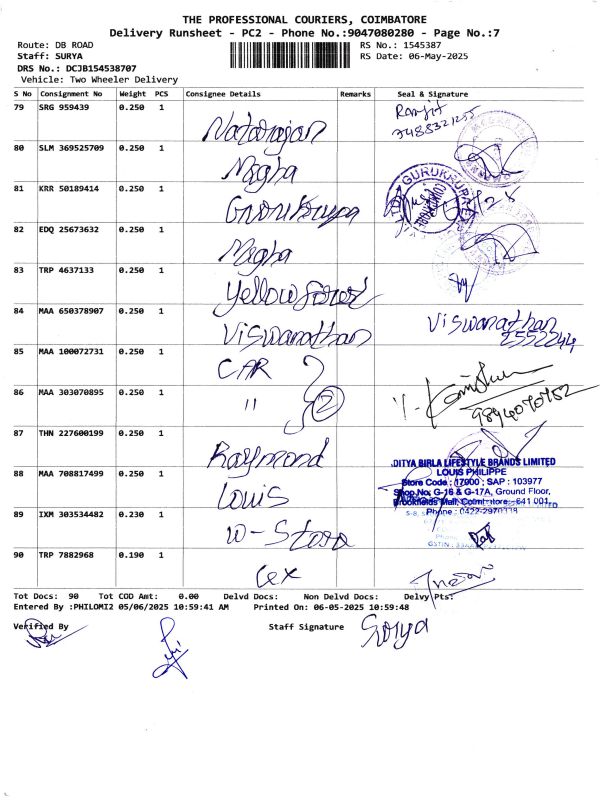 THE PROFESSIONAL COURIERS, COIMBATORE
Delivery Runsheet - PC2 - Phone No.:9047080280 - Page No.:7
Route: DB ROAD RS No.: 1545387
Staff: SURYA RS Date: 06-May-2025
DRS No.: DCJB154538707
Vehicle: Two Wheeler Delivery
S No Consignment No Weight PCS Consignee Details Remarks Seal & Signature
79 SRG 959439 0.250 1 Natarajan Ranjit
7488321255
80 SLM 369525709 0.250 1 Megha
81 KRR 50189414 0.250 1 Gurukrupa GURUKRUPA
82 EDQ 25673632 0.250 1 Megha
83 TRP 4637133 0.250 1 Yellow
84 MAA 650378907 0.250 1 Viswanathan Viswanathan
2552244
85 MAA 100072731 0.250 1 CAR
86 MAA 303070895 0.250 1 " 2
9894070752
87 THN 227600199 0.250 1 Raymond
ADITYA BIRLA LIFESTYLE BRANDS LIMITED
LOUIS PHILIPPE
88 MAA 708817499 0.250 1 Louis Store Code : 17000 ; SAP : 103977
Shop No. G-16 & G-17A, Ground Floor,
Brookfields Mall, Coimbatore - 641 001.
Phone : 0422-2970338
89 IXM 303534482 0.230 1 W-Store
GSTIN :
90 TRP 7882968 0.190 1 Cex
Tot Docs: 90 Tot COD Amt: 0.00 Delvd Docs: Non Delvd Docs: Delvy Pts:
Entered By :PHILOMI2 05/06/2025 10:59:41 AM Printed On: 06-05-2025 10:59:48
Verified By Staff Signature Surya